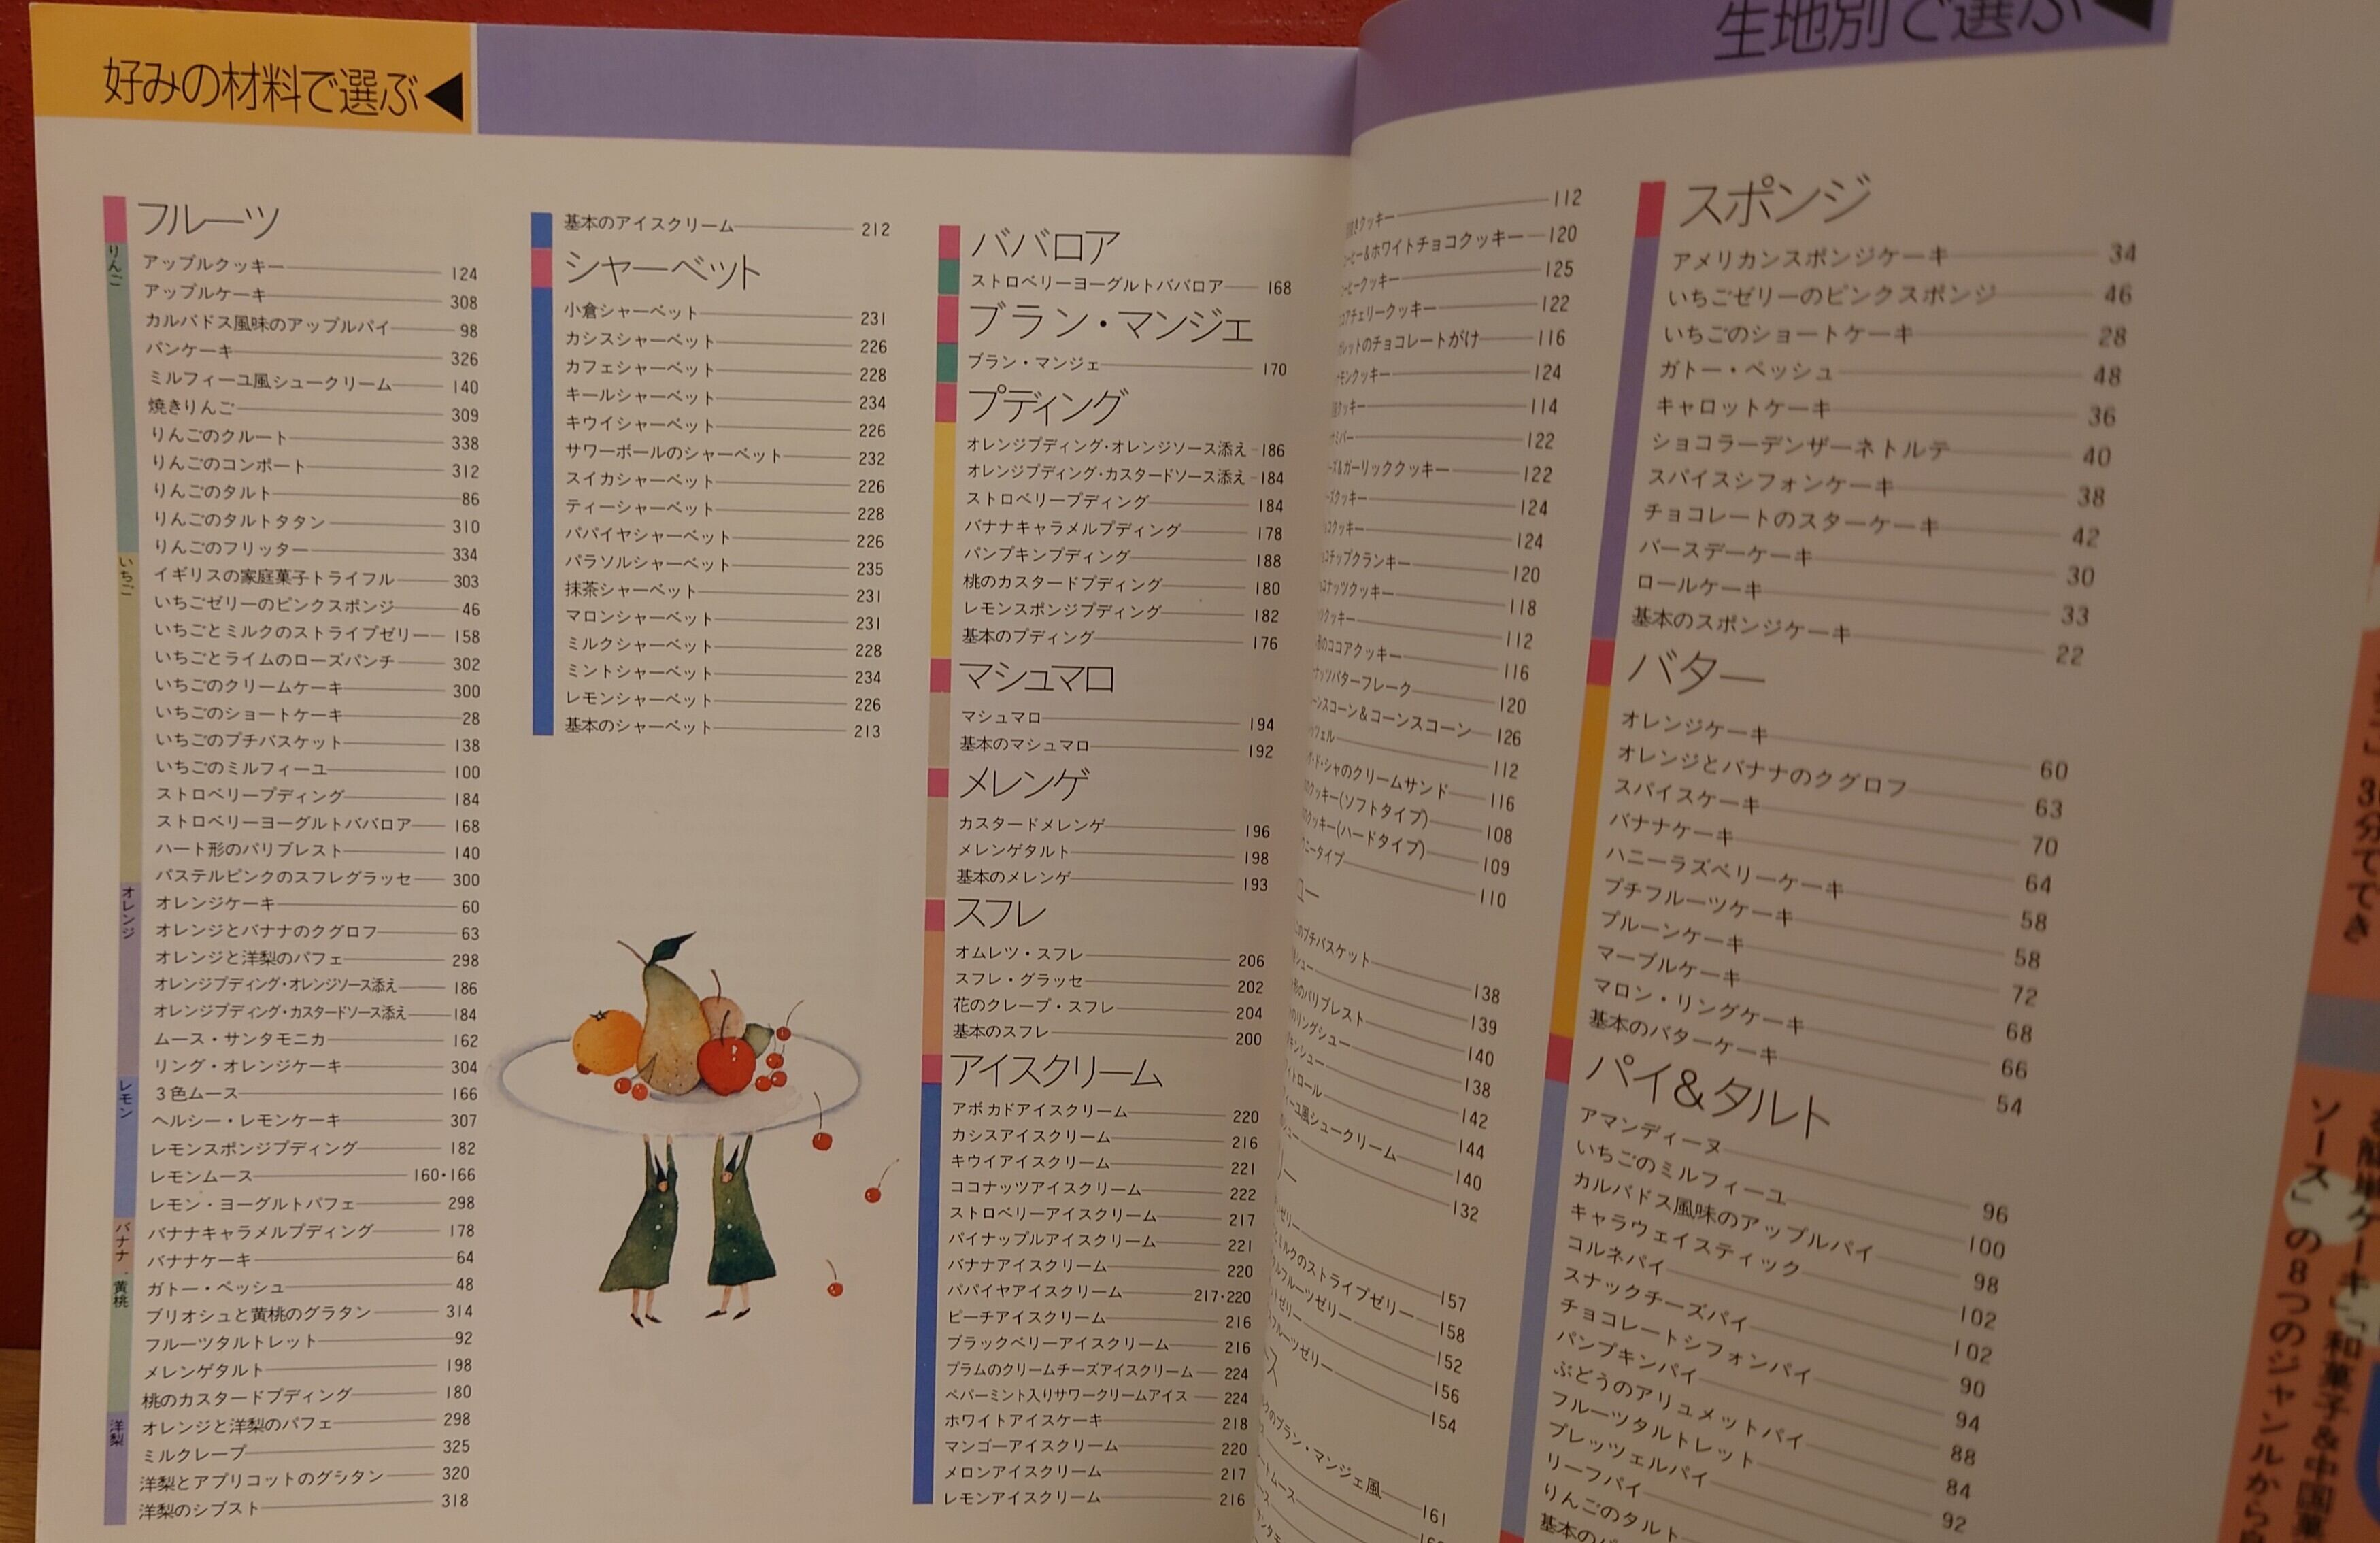 好みの材料で選ぶ◀
フルーツ
りんご
アップルクッキー 124
アップルケーキ 308
カルバドス風味のアップルパイ 98
パンケーキ 326
ミルフィーユ風シュークリーム 140
焼きりんご 309
りんごのクルート 338
りんごのコンポート 312
りんごのタルト 86
りんごのタルトタタン 310
りんごのフリッター 334
いちご
イギリスの家庭菓子トライフル 303
いちごゼリーのピンクスポンジ 46
いちごとミルクのストライプゼリー 158
いちごとライムのローズパンチ 302
いちごのクリームケーキ 300
いちごのショートケーキ 28
いちごのプチバスケット 138
いちごのミルフィーユ 100
ストロベリープディング 184
ストロベリーヨーグルトババロア 168
ハート形のパリブレスト 140
パステルピンクのスフレグラッセ 300
オレンジ
オレンジケーキ 60
オレンジとバナナのクグロフ 63
オレンジと洋梨のパフェ 298
オレンジプディング・オレンジソース添え 186
オレンジプディング・カスタードソース添え 184
ムース・サンタモニカ 162
リング・オレンジケーキ 304
レモン
3色ムース 166
ヘルシー・レモンケーキ 307
レモンスポンジプディング 182
レモンムース 160・166
レモン・ヨーグルトパフェ 298
バナナ
バナナキャラメルプディング 178
バナナケーキ 64
黄桃
ガトー・ペッシュ 48
ブリオシュと黄桃のグラタン 314
フルーツタルトレット 92
メレンゲタルト 198
桃のカスタードプディング 180
洋梨
オレンジと洋梨のパフェ 298
ミルクレープ 325
洋梨とアプリコットのグラタン 320
洋梨のシブスト 318
基本のアイスクリーム 212
シャーベット
小倉シャーベット 231
カシスシャーベット 226
カフェシャーベット 228
キールシャーベット 234
キウイシャーベット 226
サワーボールのシャーベット 232
スイカシャーベット 226
ティーシャーベット 228
パパイヤシャーベット 226
パラソルシャーベット 235
抹茶シャーベット 231
マロンシャーベット 231
ミルクシャーベット 228
ミントシャーベット 234
レモンシャーベット 226
基本のシャーベット 213
ババロア
ストロベリーヨーグルトババロア 168
ブラン・マンジェ
ブラン・マンジェ 170
プディング
オレンジプディング・オレンジソース添え 186
オレンジプディング・カスタードソース添え 184
ストロベリープディング 184
バナナキャラメルプディング 178
パンプキンプディング 188
桃のカスタードプディング 180
レモンスポンジプディング 182
基本のプディング 176
マシュマロ
マシュマロ 194
基本のマシュマロ 192
メレンゲ
カスタードメレンゲ 196
メレンゲタルト 198
基本のメレンゲ 193
スフレ
オムレツ・スフレ 206
スフレ・グラッセ 202
花のクレープ・スフレ 204
基本のスフレ 200
アイスクリーム
アボカドアイスクリーム 220
カシスアイスクリーム 216
キウイアイスクリーム 221
ココナッツアイスクリーム 222
ストロベリーアイスクリーム 217
パイナップルアイスクリーム 221
バナナアイスクリーム 220
パパイヤアイスクリーム 217・220
ピーチアイスクリーム 216
ブラックベリーアイスクリーム 216
プラムのクリームチーズアイスクリーム 224
ペパーミント入りサワークリームアイス 224
ホワイトアイスケーキ 218
マンゴーアイスクリーム 220
メロンアイスクリーム 217
レモンアイスクリーム 216
生地別で選ぶ◀
きクッキー 112
ーヒー&ホワイトチョコクッキー 120
ーヒークッキー 125
コアチェリークッキー 122
レットのチョコレートがけ 116
モンクッキー 124
クッキー 114
バー 122
ーズ&ガーリッククッキー 122
ーズクッキー 124
コクッキー 124
コチップクランキー 120
コナッツクッキー 118
クッキー 112
のココアクッキー 116
ーナッツバターフレーク 120
ーンスコーン&コーンスコーン 126
ッフェル 112
グ・ド・シャのクリームサンド 116
のクッキー(ソフトタイプ) 108
のクッキー(ハードタイプ) 109
ニータイプ 110
ー
のプチバスケット 138
シュー 139
形のパリブレスト 140
のリングシュー 138
キンシュー 142
ィトロール 144
ィーユ風シュークリーム 140
シュー 132
ー
ゼリー 157
とミルクのストライプゼリー 158
ルフルーツゼリー 152
ゼリー 156
フルーツゼリー 154
ス
クのブラン・マンジェ風 161
ートムース
スポンジ
アメリカンスポンジケーキ 34
いちごゼリーのピンクスポンジ 46
いちごのショートケーキ 28
ガトー・ペッシュ 48
キャロットケーキ 36
ショコラーデンザーネトルテ 40
スパイスシフォンケーキ 38
チョコレートのスターケーキ 42
バースデーケーキ 30
ロールケーキ 33
基本のスポンジケーキ 22
バター
オレンジケーキ 60
オレンジとバナナのクグロフ 63
スパイスケーキ 70
バナナケーキ 64
ハニーラズベリーケーキ 58
プチフルーツケーキ 58
プルーンケーキ 72
マーブルケーキ 68
マロン・リングケーキ 66
基本のバターケーキ 54
パイ&タルト
アマンディーヌ 96
いちごのミルフィーユ 100
カルバドス風味のアップルパイ 98
キャラウェイスティック 102
コルネパイ 102
スナックチーズパイ 90
チョコレートシフォンパイ 94
パンプキンパイ 88
ぶどうのアリュメットパイ 84
フルーツタルトレット 92
プレッツェルパイ
リーフパイ
りんごのタルト
基本の
30分ででき
る簡単ケーキ」「和菓子&中国菓
ソース」の8つのジャンルから